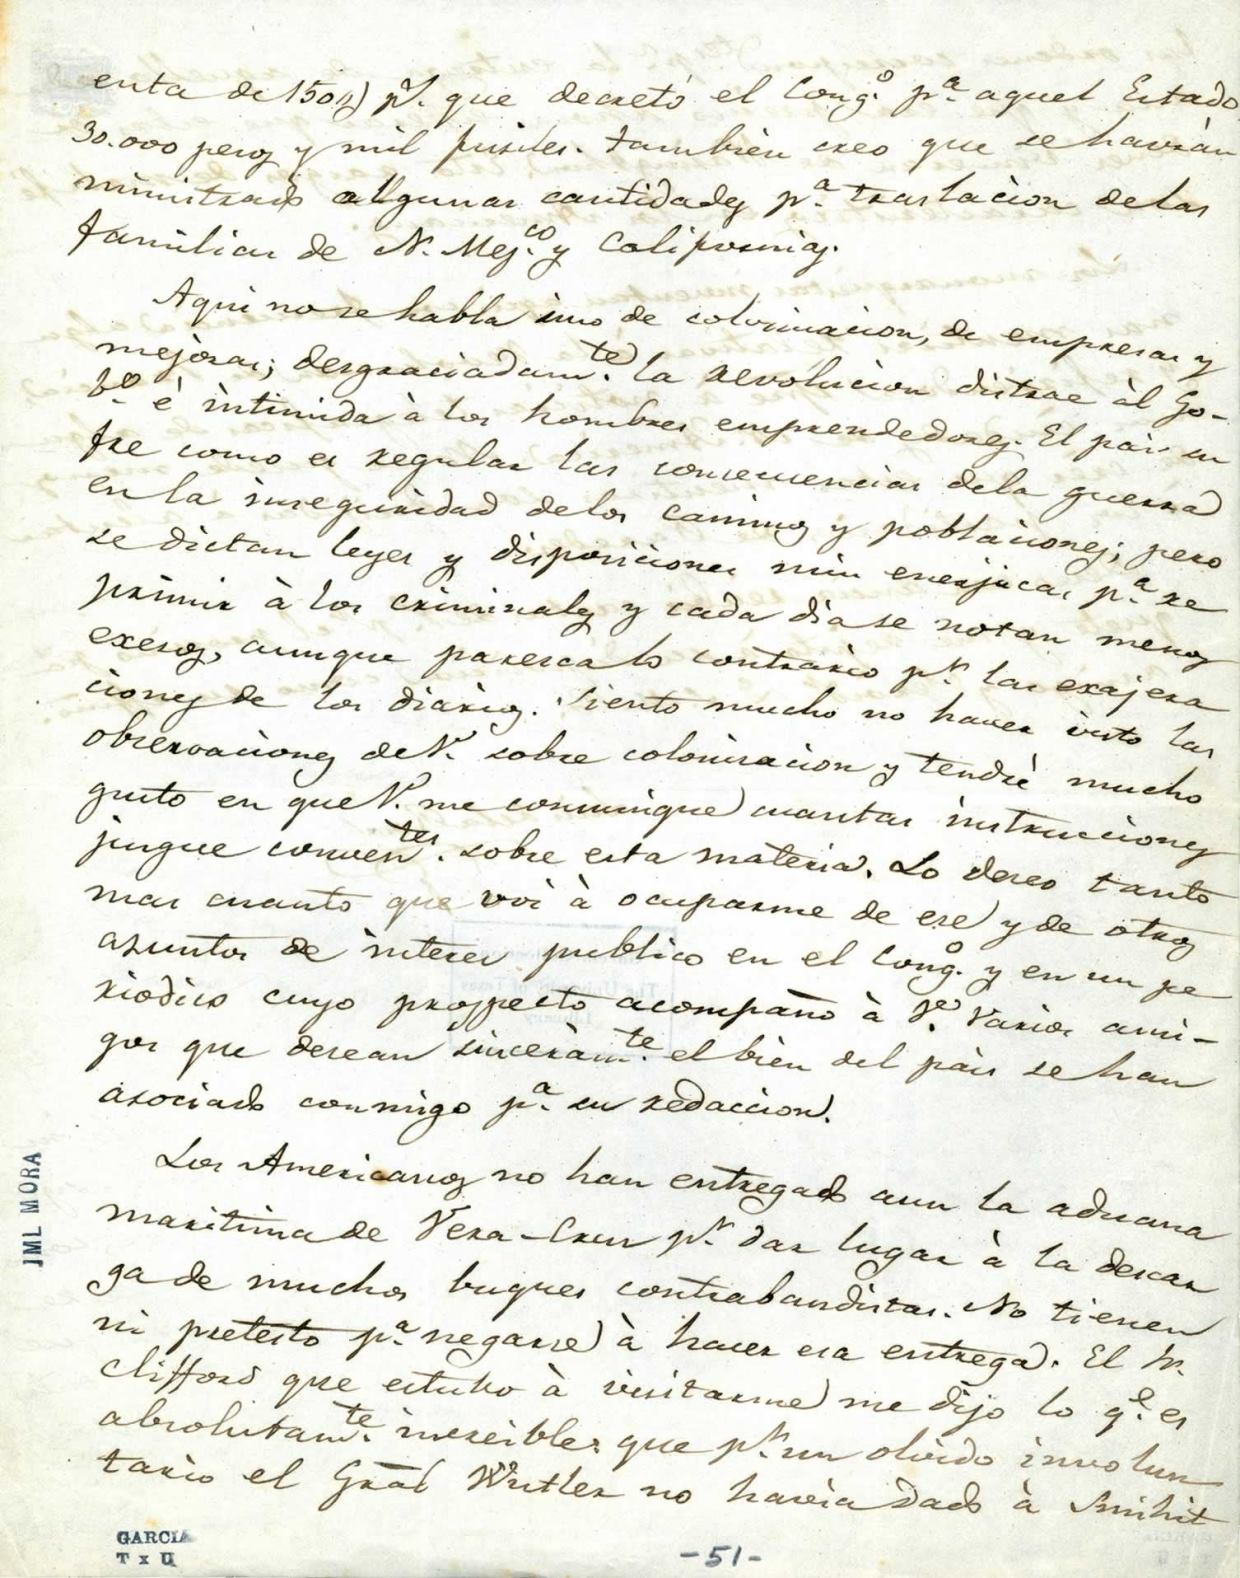 enta de 150 p.s que decretó el Cong.o p.a aquel Estado
30.000 pesos y mil fusiles. tambièn creo que se havràn
ministrado algunas cantidades p.a traslàcion delas
familias de N. Mej.co y Californias.
Aqui no se habla sino de colonisacion, de empresas y
mejoras; desgraciadam.te la revolucion distrae àl Go-
b.o è intimida à los hombres emprendedores. El pais su
fre como es regular las consecuencias dela guerra
en la inseguridad delos caminos y poblaciones; pero
se dictan leyes y disposiciones mui enerjicas p.a re
primir à los criminales y cada dia se notan menos
exesos, aunque paresca lo contrario p.r las exajera
ciones de los diarios. Siento mucho no haver visto las
observaciones de V. sobre colonisacion y tendrè mucho
gusto en que V. me comunique cuantas instrucciones
jusgue conven.tes sobre esta materia. Lo deseo tanto
mas cuanto que voi à ocuparme de ese y de otros
asuntos de interes publico en el Cong.o y en un pe
riodico cuyo prospecto acompaño à V. Varios ami-
gos que desean sinceràm.te el bien del pais se han
asociado conmigo p.a su redaccion.
Los Americanos no han entregado aun la aduana
maritima de Vera-Cruz p.r dar lugar à la descar
ga de muchos buques contrabandistas. No tienen
ni pretesto p.a negarse à hacer esa entrega. El Sr.
Clifford que estubo à visitarme me dijo lo q.e es
absolutam.te increible, que p.r un olvido involun
tario el Gral Wutler no havia dado à Smihit
JML MORA
GARCIA
T x U
-51-